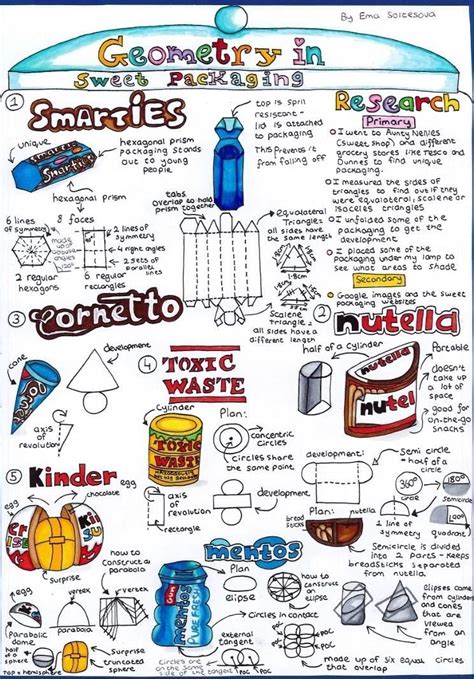 By Ema Soltesova
Geometry in
Sweet Packaging
1
SMARTIES
unique
hexagonal prism
packaging stands
out to young
people
Smarties
hexagonal prism
6 lines
of symmetry
8 faces
2 lines of
symmetry
4 right angles
2 sets of
parallel
lines
2 regular
hexagons
6 regular
rectangles
top is spill
resistant -
lid is attached
to packaging
This prevents it
from falling off
tabs
overlap to hold
prism together
equalateral
Triangle -
all sides have
the same length
1.8cm
Scalene
Triangle -
all sides have a
different length
Research
Primary
I went to Aunty Nellies
(sweet shop) and different
grocery stores like Tesco and
Dunnes to find unique
packaging.
I measured the sides of
triangles to find out if they
were equilateral, scalene or
isoceles triangles
I unfolded some of the
packaging to get the
development
I placed some of the
packaging under my lamp to
see what areas to shade
Secondary
Google images and the sweet
packaging websites
3
Cornetto
cone
development
axis
of
revolution
4
TOXIC
WASTE
Cylinder
TOXIC
WASTE
Plan:
concentric
circles
circles share
the same point
axis
of
revolution
rectangle
development
2
nutella
half of a cylinder
nutella
nutel
Portable
doesn't
take up
a lot of
space
good for
on-the-go
snacks
development:
Semi circle
- half of a
circle
360°
180°
90°
semicircle
quadrant
Plan:
nutella
bread
sticks
1 line of
symmetry
Semicircle is divided
into 2 parts - keeps
breadsticks separated
from nutella
5
Kinder
egg
chocolate
egg
Surprise
how to
construct a
parabola
vertex
vertex
Parabolic
dome
parabola
half of
a sphere
top = hemisphere
Surprise
truncated
sphere
mentos
Gum
mentos
PURE FRESH
Plan
elipse
how to
construct
an
elipse
elipses came
from cylinder
and cones
that are
viewed from
an angle
circles in contact
external
tangent
POC
Circles are on the same
side of the tangent
made up of six equal circles
that overlap